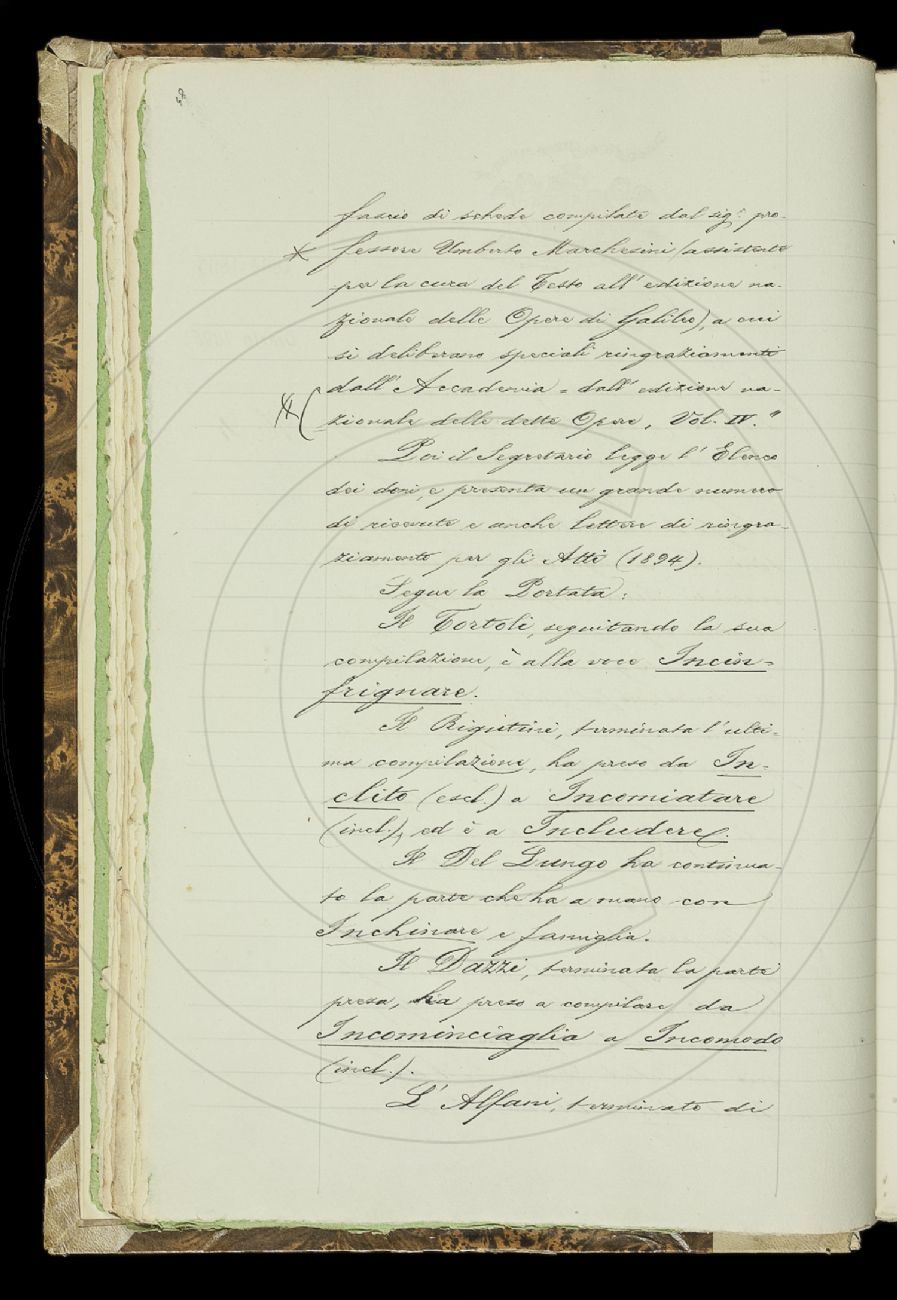 fascio di schede compilate dal sig.r pro-
fessore Umberto Marchesini (assistente
per la cura del Testo all' edizione na-
zionale delle Opere di Galileo), a cui
si deliberano speciali ringraziamenti
dall' Accademia = dall' edizione na-
zionale delle dette Opere, Vol. IV."
Poi il Segretario legge l' Elenco
dei doni e presenta un grande numero
di ricevute e anche lettere di ringra-
ziamento per gli Atti (1894).
Segue la Portata:
Il Tortoli, seguitando la sua
compilazione, è alla voce Incin=
frignare.
Il Rigutini, terminata l' ulti-
ma compilazione, ha preso da In-
clito (escl.) a Incomiatare
(incl.), ed è a Includere.
Il Del Lungo ha continua-
to la parte che ha a mano con
Inchinare e famiglia.
Il Dazzi, terminata la parte
presa, ha preso a compilare da
Incominciaglia a Incomodo
(incl.).
L' Alfani, terminato di